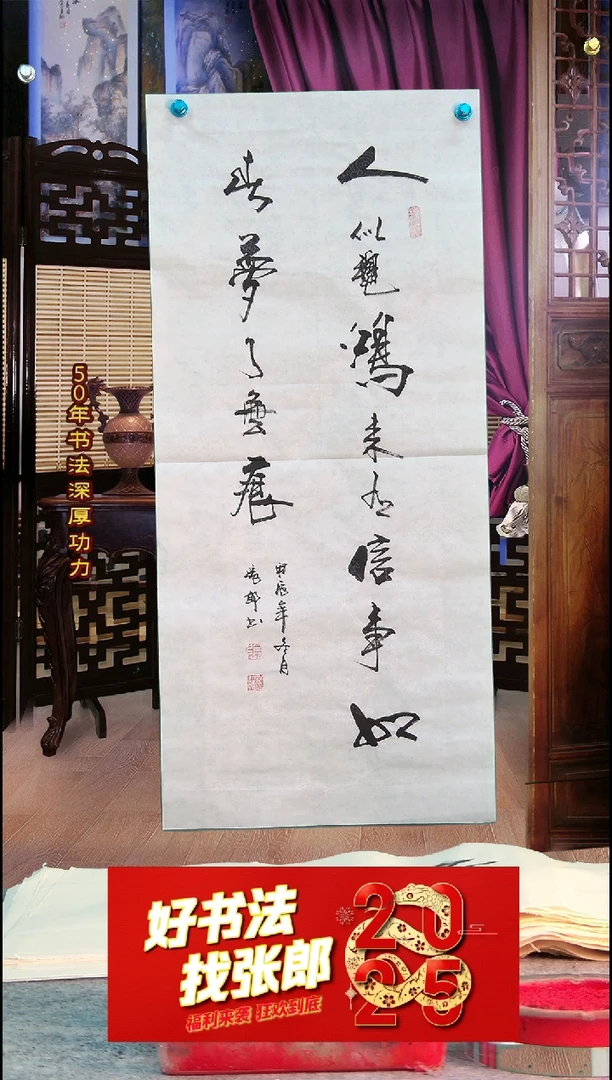 人似穐鴻来有信事如
春夢了無痕
甲辰年冬月
張郎书
50年书法深厚功力
好书法
找张郎
福利来袭 狂欢到底
2025